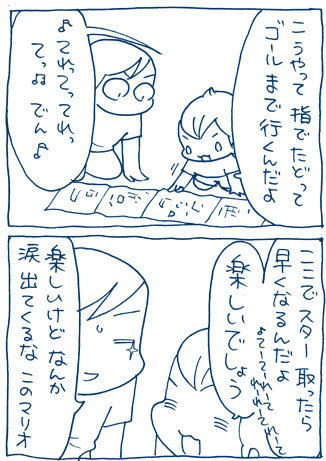 こうやって指でたどって
ゴールまで行くんだよ
♪てれってってれっ
てっ♪でん♪
ここでスター取ったら
早くなるんだよ
楽しいでしょう
楽しいけどなんか
涙出てくるな このマリオ